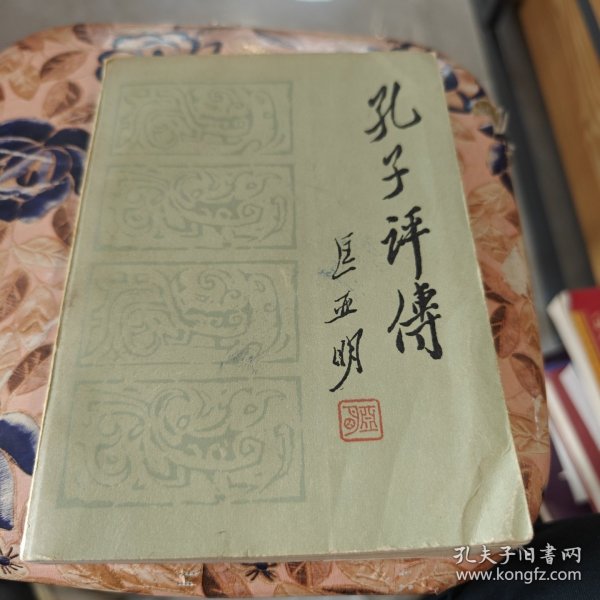 孔子评傳
匡亚明
孔夫子旧書网
www.kongfz.com